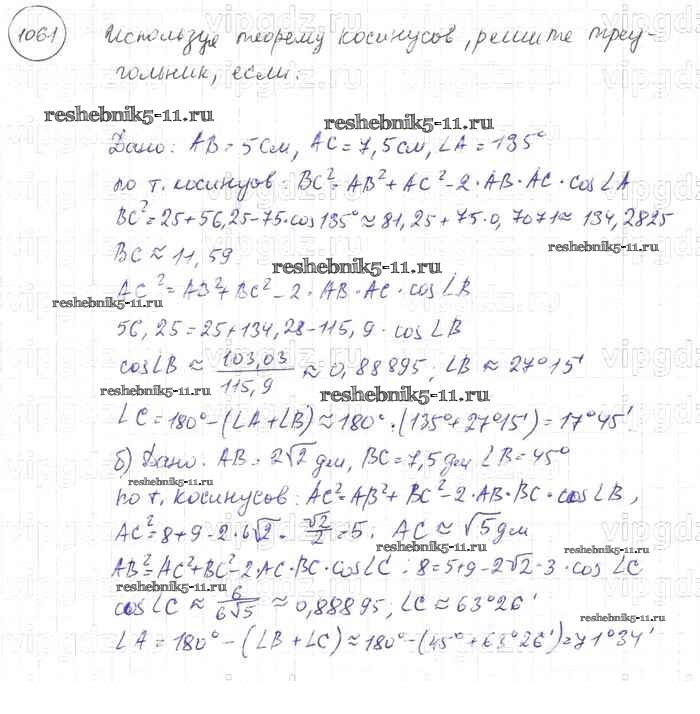 1061 Используя теорему косинусов, решите треу-
гольник, если:
reshebnik5-11.ru
reshebnik5-11.ru
Дано: AB = 5 см, AC = 7,5 см, ∠A = 135°
по т. косинусов: BC² = AB² + AC² - 2·AB·AC·cos∠A
BC² = 25 + 56,25 - 75·cos135° ≈ 81,25 + 75·0,7071 ≈ 134,2825
reshebnik5-11.ru
BC ≈ 11,59
reshebnik5-11.ru
AC² = AB² + BC² - 2·AB·AC·cos∠B
reshebnik5-11.ru
56,25 = 25 + 134,28 - 115,9·cos∠B
cos∠B ≈ 103,03/115,9 ≈ 0,88895; ∠B ≈ 27°15'
reshebnik5-11.ru
reshebnik5-11.ru
∠C = 180° - (∠A + ∠B) ≈ 180°·(135° + 27°15') = 17°45'
б) Дано: AB = 2√2 дм, BC = 7,5 дм ∠B = 45°
reshebnik5-11.ru
по т. косинусов: AC² = AB² + BC² - 2·AB·BC·cos∠B,
AC² = 8 + 9 - 2·6√2·√2/2 = 5; AC ≈ √5 дм
reshebnik5-11.ru
reshebnik5-11.ru
AB² = AC² + BC² - 2·AC·BC·cos∠C; 8 = 5 + 9 - 2√2·3·cos∠C
reshebnik5-11.ru
cos∠C ≈ 6/6√5 ≈ 0,88895; ∠C ≈ 63°26'
reshebnik5-11.ru
∠A = 180° - (∠B + ∠C) ≈ 180° - (45° + 63°26') = 71°34'